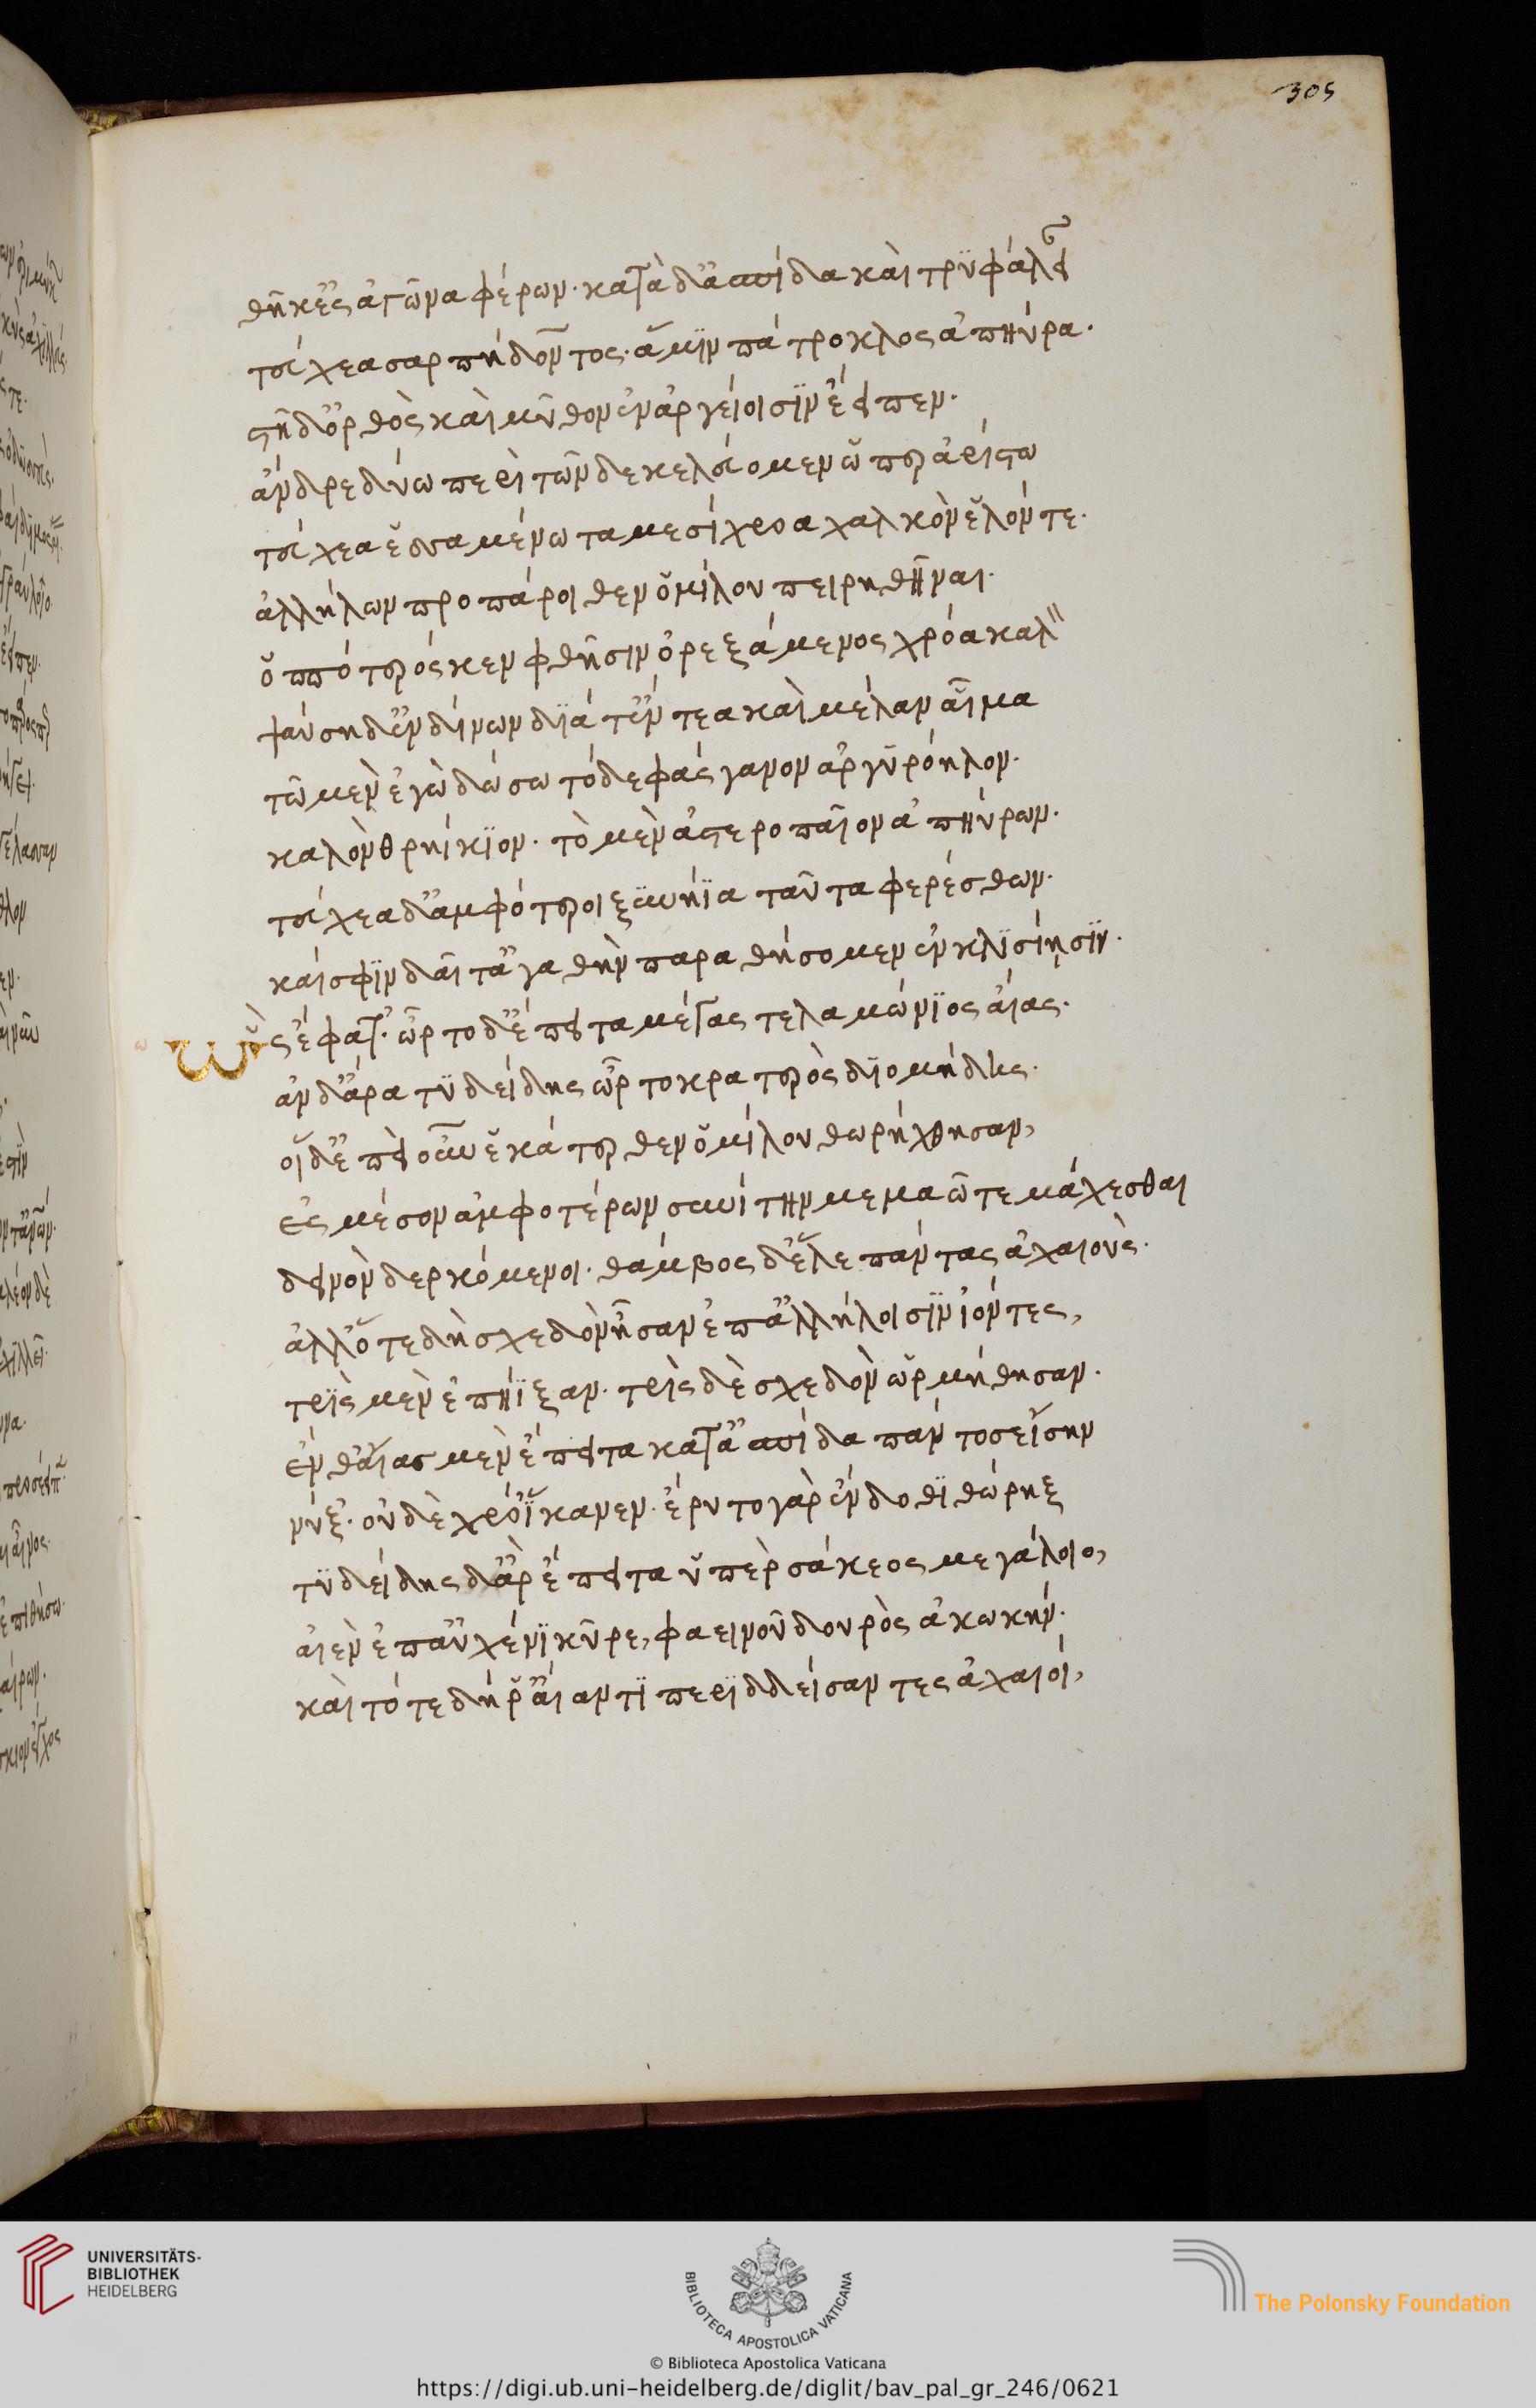 305
θῆκ' ἐς ἀγῶνα φέρων· κατὰ δ' ἀσπίδα καὶ τρυφάλειαν
τεύχεα σαρπήδοντος· ἅ μϊν πάτροκλος ἀπηύρα·
στῆ δ' ὀρθὸς καὶ μῦθον ἐν ἀργείοισϊν ἔειπεν·
ἄνδρε δύω περὶ τῶνδε κελεύομεν ὥπερ ἀρίστω
τεύχεα ἑσσαμένω ταμεσίχροα χαλκὸν ἑλόντε·
ἀλλήλων προπάροιθεν ὁμίλου πειρηθῆναι·
ὁππότερός κεν φθῇσιν ὀρεξάμενος χρόα καλὸν
ψαύσῃ δ' ἐνδίνων δϊά τ' ἔντεα καὶ μέλαν αἷμα
τῷ μὲν ἐγὼ δώσω τόδε φάσγανον ἀργῡρόηλον·
καλὸν θρηίκϊον· τὸ μὲν ἀστεροπαῖον ἀπηύρων·
τεύχεα δ' ἀμφότεροι ξϋνήϊα ταῦτα φερέσθων·
καί σφϊν δαῖτ' ἀγαθὴν παραθήσομεν ἐν κλϊσίῃσϊν·
Ὣς ἔφατ'· ὦρτο δ' ἔπειτα μέγας τελαμώνϊος αἴας·
ἂν δ' ἄρα τϋδείδης ὦρτο κρατερὸς δϊομήδης·
οἱ δ' ἐπεὶ οὖν ἑκάτερθεν ὁμίλου θωρήχθησαν,
ἐς μέσον ἀμφοτέρων συνίτην μεμαῶτε μάχεσθαι
δεινὸν δερκόμενοι· θάμβος δ' ἕλε πάντας ἀχαιούς·
ἀλλ' ὅτε δὴ σχεδὸν ἦσαν ἐπ' ἀλλήλοισϊν ἰόντες,
τρὶς μὲν ἐπήϊξαν· τρὶς δὲ σχεδὸν ὡρμήθησαν·
ἔνθ' αἴας μὲν ἔπειτα κατ' ἀσπίδα πάντοσ' ἐΐσην
νύξ'· οὐδὲ χρό' ἵκανεν· ἔρυτο γὰρ ἔνδοθϊ θώρηξ
τϋδείδης δ' ἂρ ἔπειτα ὑπὲρ σάκεος μεγάλοιο,
αἰὲν ἐπ' αὐχένϊ κῦρε, φαεινοῦ δουρὸς ἀκωκήν·
καὶ τότε δή ῥ' αἴαντϊ περϊδδείσαντες ἀχαιοί,
UNIVERSITÄTS-
BIBLIOTHEK
HEIDELBERG
BIBLIOTECA APOSTOLICA VATICANA
The Polonsky Foundation
© Biblioteca Apostolica Vaticana
https://digi.ub.uni-heidelberg.de/diglit/bav_pal_gr_246/0621